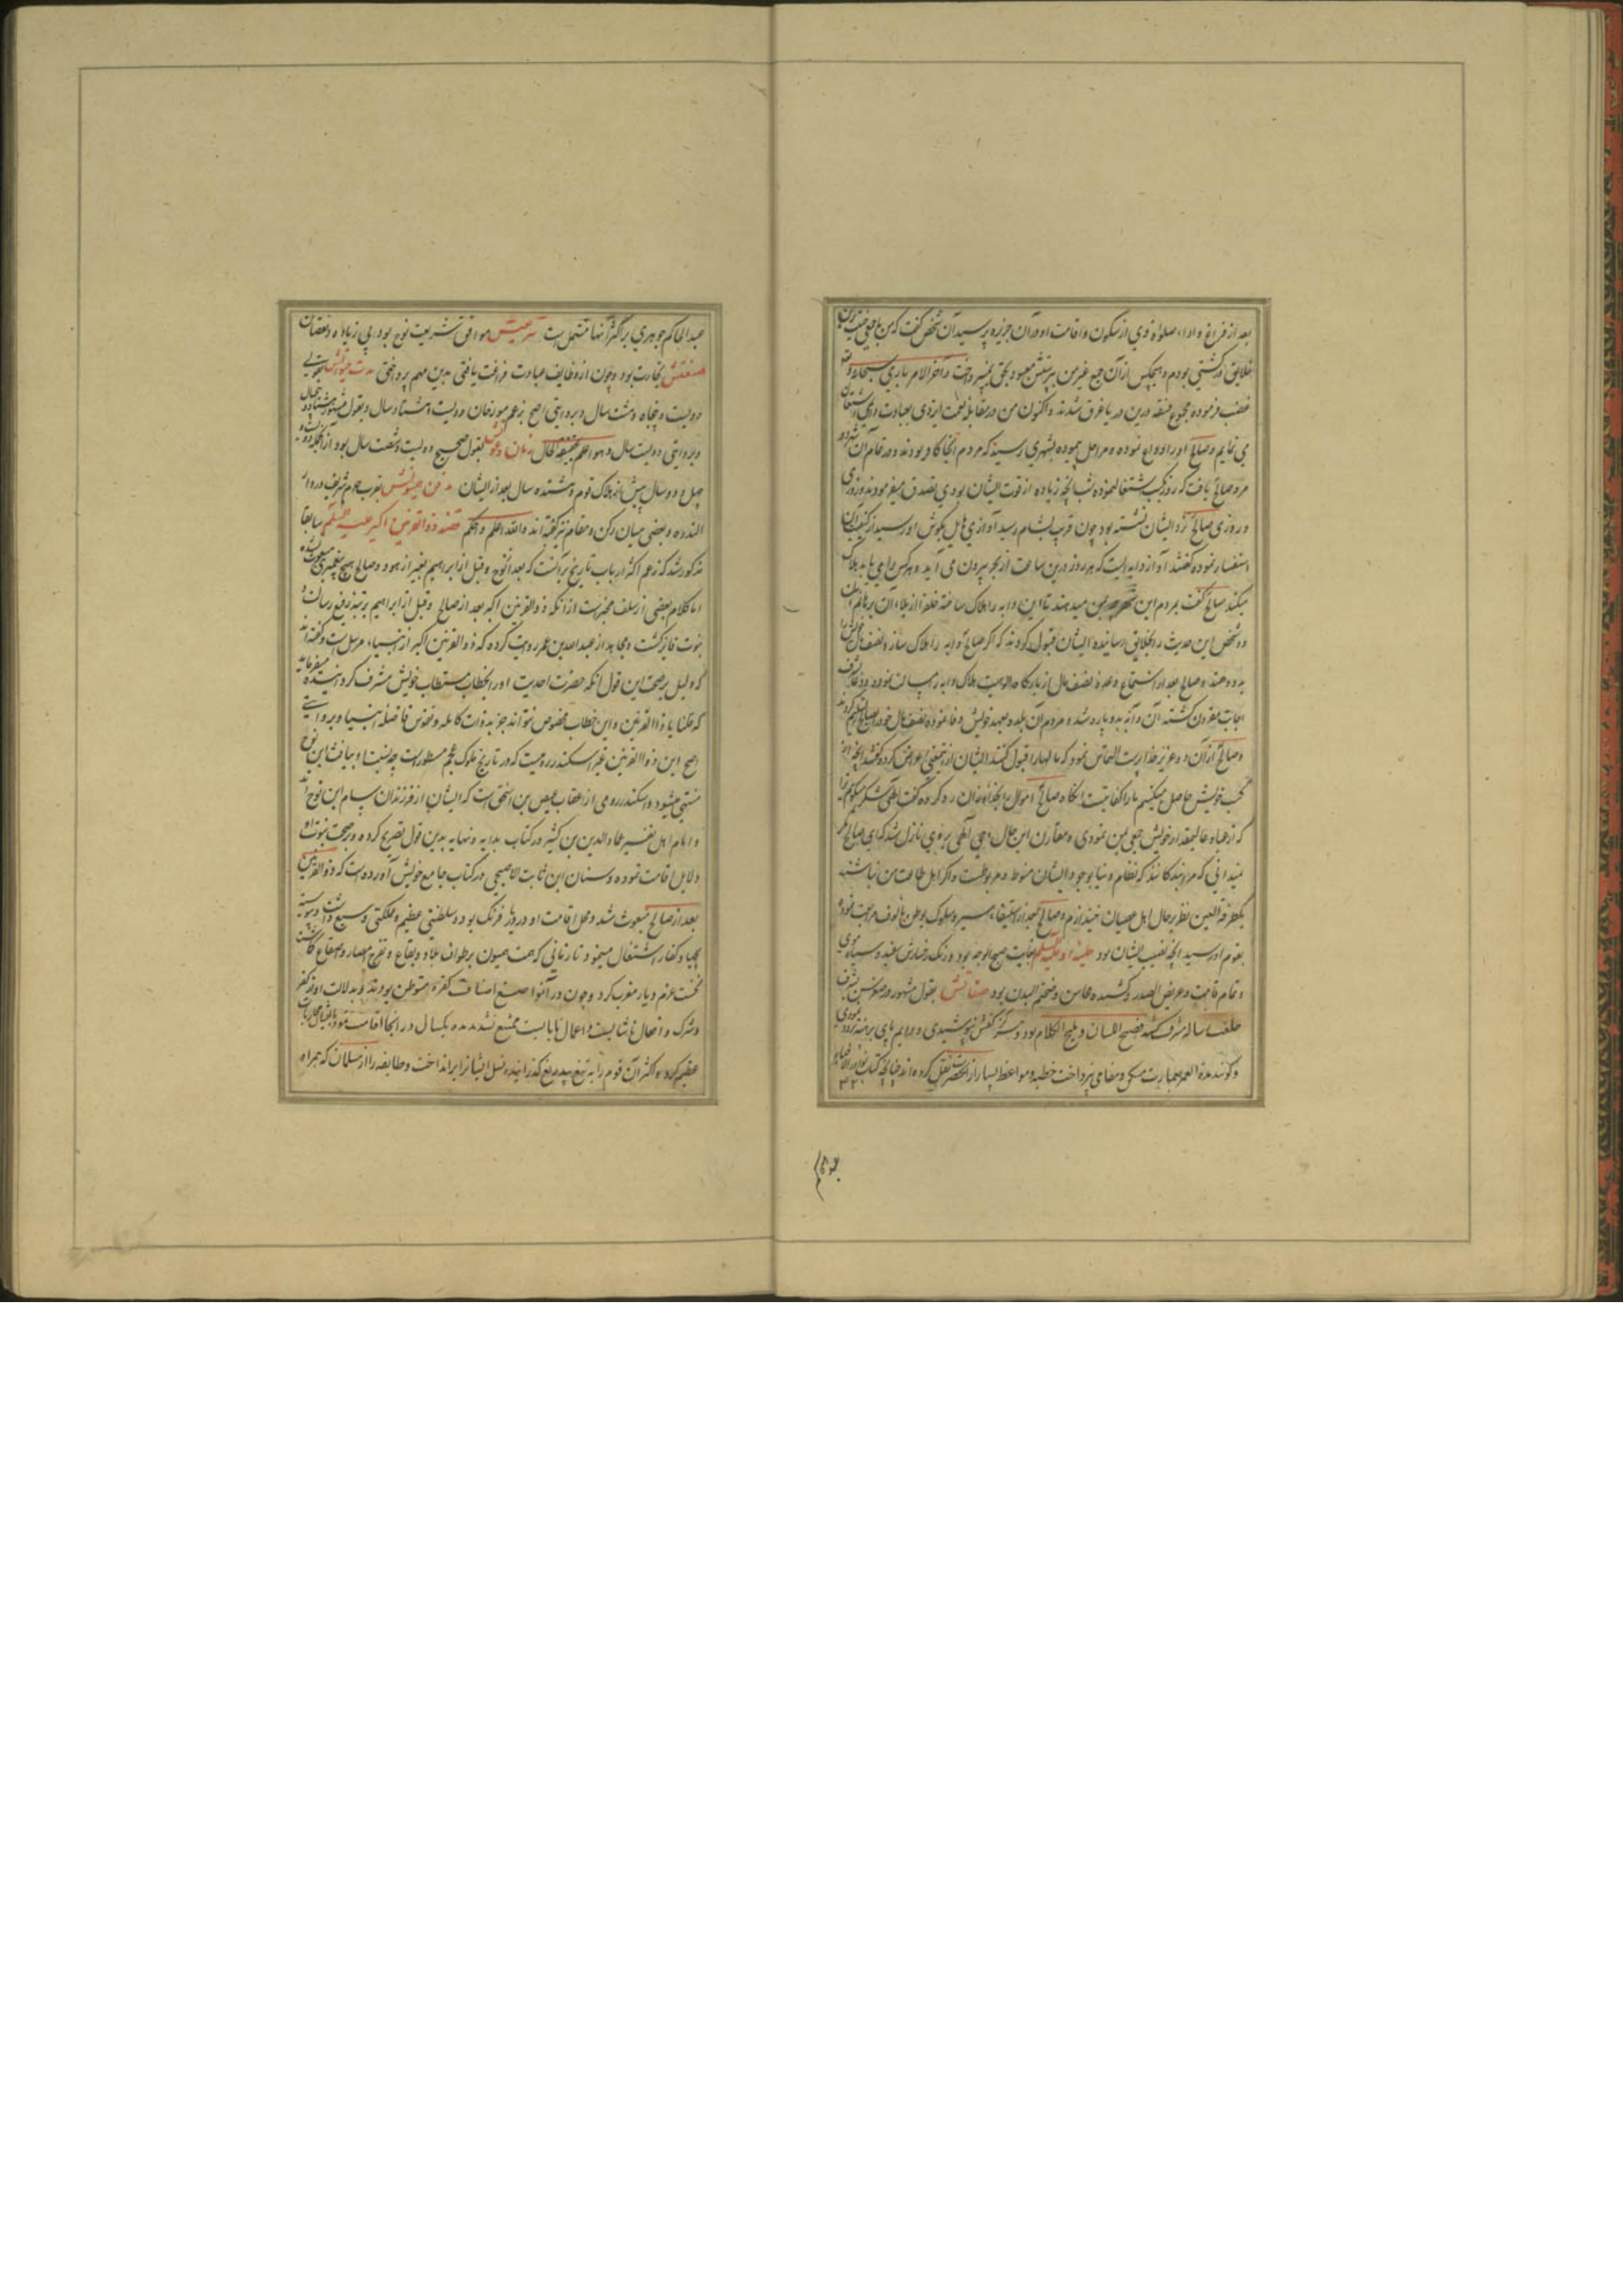 بعد از فراغ و اداء صلوة وی از سکون و اقامت او در آن جزیره پرسید آن شخص گفت که من با جمعی
خلایق در کشتی بودم و هیچکس از آن جمع غیر من بپرستش معبود بحق نمیپرداخت و آخر الامر باری سبحانه و تعالی
غضب فرموده مجموع فسقه درین دریا غرق شدند و اکنون من در مقابله نعمت ایزدی بعبادت وی اشتغال
می نمایم و صالح او را وداع نموده و مراحل پیموده بشهری رسید که مردم آنجا کافر بودند و در تمام آن شهر دو
مرد صالح یافت که روز بکسب اشتغال نموده شب آنچه زیاده از قوت ایشان بودی تصدق میفرمودند و روزی
و روزی صالح نزد ایشان نشسته بود چون قریب بشام رسید آوازی هایل بگوش او رسید از کیفیت آن
استفسار نموده گفتند آواز دابه ایست که هر روز درین ساعت از بحر بیرون می آید و هر کس را می یابد هلاک
میکند صالح گفت مردم این شهر بمن میدهند تا این دابه را هلاک ساخته خلق را از بلاء آن برهانم آن
دو شخص این حدیث را بخلایق رسانیده ایشان قبول کردند که اگر صالح دابه را هلاک سازد نصف مال خویش را
بدو دهند و صالح بعد از استماع وعده نصف مال از بارگاه الوهیت هلاک دابه را مسالت نمود و دعا بشرف
اجابت مقرون گشته آن دابه بدو پاره شد و مردم آن بلده بعهد خویش وفا نموده نصف مال خود را بصالح تسلیم کردند
و صالح از آن دو عزیز خداپرست التماس نمود که مالها را قبول کنند ایشان ازینمعنی اعراض کرده گفتند آنچه از
کسب خویش حاصل میکنیم ما را کفایتست آنگاه صالح اموال را بخداوندان رد کرده گفت الهی شکر میگویم ترا
که از عباد عالیمقدار خویش جمعی بمن نمودی و مقارن این حال وحی الهی بر وی نازل شد که ای صالح مگر
نمیدانی که مرا بندگانند که نظام دنیا بوجود ایشان منوط و مربوطست و اگر اهل طاعت من نباشند
یکطرفة العین نظر بر حال اهل عصیان نیندازم و صالح بعد از استیفاء سیر و سلوک بوطن مالوف مراجعت نموده
بقوم او رسید آنچه نصیب ایشان بود حلیه او علیه السلم بغایت صبیح الوجه بود و رنگ رخسارش سفید و سیاه موی
و تمام قامت و عریض الصدر و کشیده محاسن و ضخیم البدن بود صفاتش بقول مشهور در سن بشرف
خلعت رساله مشرف گشته فصیح اللسان و بلیغ الکلام بود و هرگز کفش نپوشیدی و دایم پای برهنه بودی
و گویند مدة العمر بعمارت مسکن و مقامی نپرداخت خطبه و مواعظ بسیار از آنحضرت نقل کرده اند چنانچه کتاب
عبدالحاکم جوهری بر اکثر آنها مشتمل است شرعیتش موافق شریعت نوح بود بی زیاده و نقصان
صنعتش تجارت بود و چون از وظایف عبادت فراغت یافتی بدین مهم پرداختی مدت حیوتش بقولی
دویست و پنجاه و هشت سال و بروایتی اصح بزعم مورخان دویست و هشتاد سال و بقول مشهور
و بروایتی دویست سال و هو اعلم بحقیقة الحال زمان دعوتش بقول صحیح دویست و شصت سال بود از آنجمله
چهل و دو سال پیش از هلاک قوم و تتمه سال بعد از ایشان مدفن حیوتش بقرب حرم شریف در دار
الندوه و بعضی میان رکن و مقام نیز گفته اند و الله اعلم و احکم قصه ذوالقرنین اکبر علیه السلم سابقا
مذکور شد که زعم اکثر ارباب تاریخ بر آنست که بعد از نوح و قبل از ابراهیم بغیر از هود و صالح هیچ پیغمبری مبعوث نشده
اما کلام بعضی از سلف مخبر است از آنکه ذوالقرنین اکبر بعد از صالح و قبل از ابراهیم برتبه رفیع رسالت و
نبوت فایز گشت و مجاهد از عبدالله بن عمر روایت کرده که ذوالقرنین اکبر از انبیاء مرسل است و گفته اند
که دلیل بر صحت این قول آنکه حضرت احدیت او را بخطاب مستطاب خویش مشرف گردانیده میفرماید
که قلنا یا ذا القرنین و این خطاب مخصوص نتواند جز بذوات کامله و نفوس فاضله انبیا و بروایتی
اصح این ذوالقرنین غیر اسکندر رومیست که در تاریخ ملوک عجم مسطور است چه نسبت او بیافث ابن نوح
منتهی میشود و اسکندر رومی از اعقاب عیص بن اسحق است که ایشان از فرزندان سام ابن نوح اند
و امام اهل تفسیر عماد الدین بن کثیر در کتاب بدایه و نهایه بدین قول تصریح کرده و بر صحت نبوت او
دلایل اقامت نموده و سنان ابن ثابت الاصبحی در کتاب جامع خویش آورده است که ذوالقرنین
بعد از صالح مبعوث شد و محل اقامت او در دیار فرنگ بود و سلطنتی عظیم و مملکتی وسیع داشت و پیوسته
بجهاد کفار اشتغال مینمود تا زمانی که همت همیون بر طواف بلاد و بقاع و تفرج امصار و اصقاع گماشت
نخست عزم دیار مغرب کرد و چون در آنمواضع اصناف کفره متوطن بودند و بدلالت او از کفر
و شرک و افعال ناشایست و اعمال نابایست ممتنع نشدند مدت یکسال در آنجا اقامت نموده
عظیم کرد و اکثر آن قوم را به تیغ بیدریغ گذرانیده نسل ایشانرا برانداخت و طایفه را از مسلمان که همراه